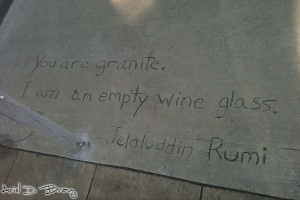 You are granite.
I am an empty wine glass.
Jelaluddin Rumi